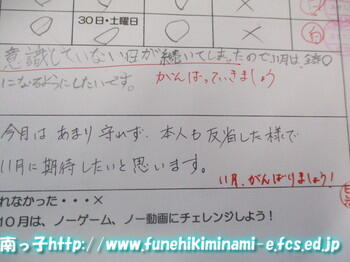 30日・土曜日
意識していない日が続いてしまったので11月は、全部○
になるようにしたいです。
がんばっていきましょう
今月は あまり守れず、本人も反省した様で
11月に期待したいと思います。
11月、がんばりましょう!
れなかった・・・×
10月は、ノーゲーム、ノー動画にチェレンジしよう!
南っ子http://www.funehikiminami-e.fcs.ed.jp